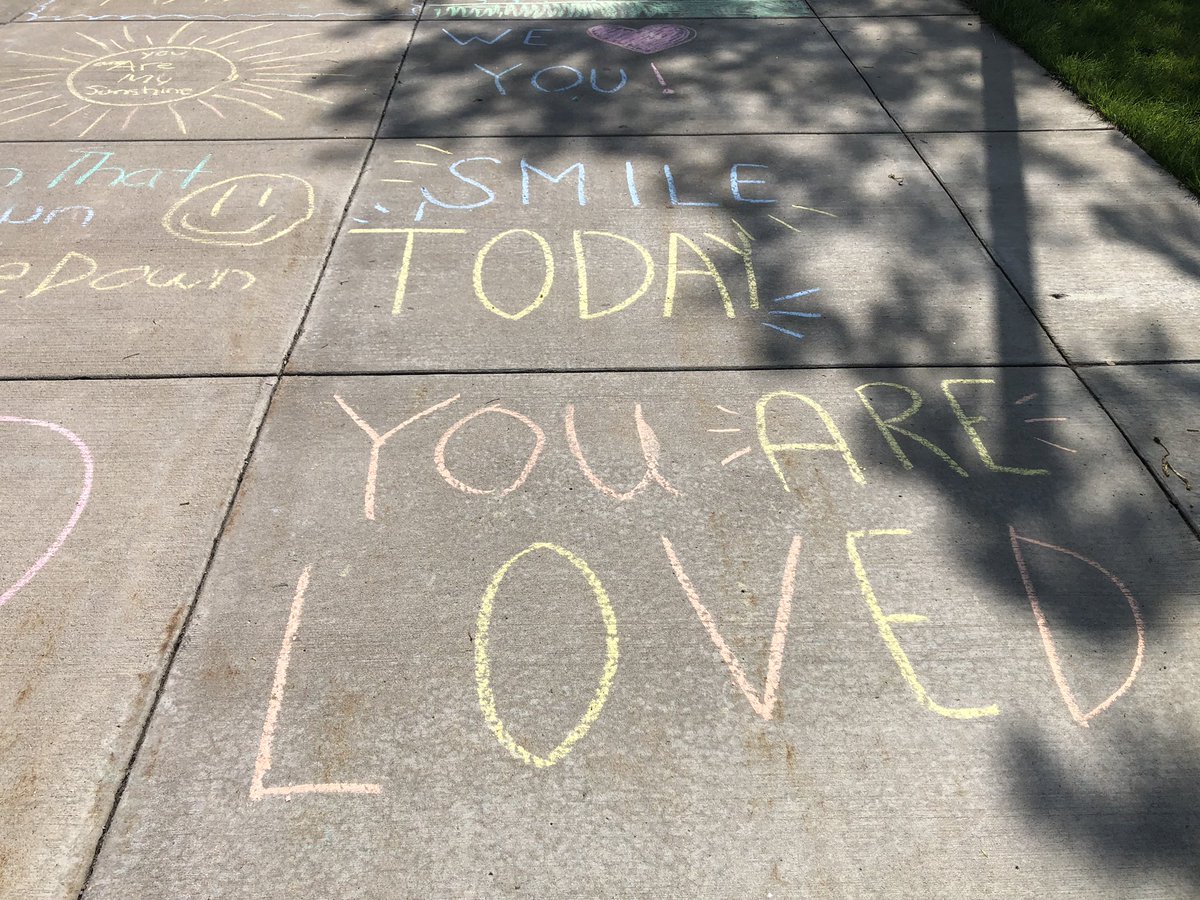 You
Are
My
Sunshine
WE
YOU!
That
Down
SMILE
TODAY
YOU ARE
LOVED